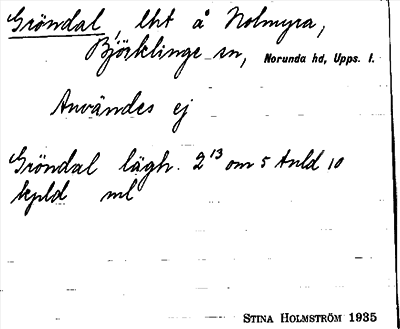 Gröndal, lht å Nolmyra,
Björklinge sn, Norunda hd, Upps. l.
Användes ej
Gröndal lägh. 2¹³ om 5 Anld 10
kpld ml
STINA HOLMSTRÖM 1935